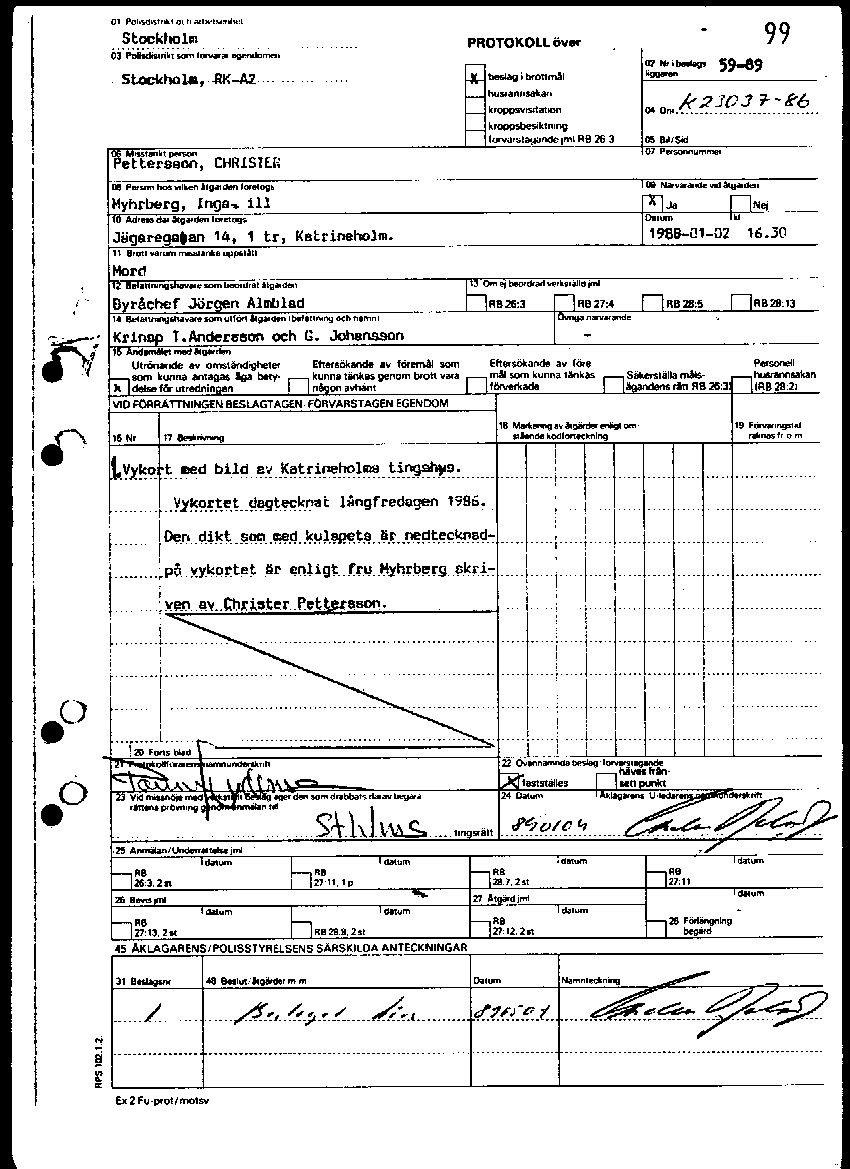 99
01 Polisdistrikt och arbetsenhet
Stockholm
03 Polisdistrikt som förvarar egendomen
Stockholm, RK-A2
PROTOKOLL över
X beslag i brottmål
husrannsakan
kroppsvisitation
kroppsbesiktning
förvarstagande jml RB 26:3
02 Nr i beslags
liggaren
59-89
04 Dnr K 23037-86
05 Bil/Sid
06 Misstänkt person
07 Personnummer
Pettersson, CHRISTER
08 Person hos vilken åtgärden företogs
09 Närvarande vid åtgärden
Myhrberg, Inga- ill
X Ja
Nej
10 Adress där åtgärden företogs
Datum
kl
Jägaregatan 14, 1 tr, Katrineholm.
1988-01-02 16.30
11 Brott varom misstanke uppstått
Mord
12 Befattningshavare som beordrat åtgärden
13 Om ej beordrad verkställd jml
Byråchef Jörgen Almblad
RB 26:3
RB 27:4
RB 28:5
RB 28:13
14 Befattningshavare som utfört åtgärden (befattning och namn)
Övriga närvarande
Krinsp T.Andersson och G. Johansson
-
15 Ändamålet med åtgärden
X Utrönande av omständigheter
som kunna antagas äga bety-
delse för utredningen
Eftersökande av föremål som
kunna tänkas genom brott vara
någon avhänt
Eftersökande av före
mål som kunna tänkas
förverkade
Säkerställa måls-
ägandens rätt RB 26:3)
Personell
husrannsakan
(RB 28:2)
VID FÖRRÄTTNINGEN BESLAGTAGEN FÖRVARSTAGEN EGENDOM
16 Nr
17 Beskrivning
18 Markering av åtgärder enligt om-
stående kodförteckning
19 Förvaringstid
räknas fr o m
1. Vykort med bild av Katrineholms tingshus.
Vykortet dagtecknat långfredagen 1986.
Den dikt som med kulspets är nedtecknad-
på vykortet är enligt fru Myhrberg skri-
ven av Christer Pettersson.
20 Forts blad
21 Protokollförarens namnunderskrift
22 Ovannämnda beslag/förvarstagande
X fastställes
häves från-
sett punkt
23 Vid missnöje med verkställt beslag äger den som drabbats därav begära
rättens prövning genom anmälan till
Sthlms tingsrätt
24 Datum
Åklagarens U-ledarens namnunderskrift
890104
25 Anmälan/Underrättelse jml
datum
datum
datum
datum
RB
26:3, 2 st
RB
27:11, 1 p
RB
28:7, 2 st
RB
27:11
26 Bevis jml
27 Åtgärd jml
datum
datum
datum
datum
RB
27:13, 2 st
RB 28:9, 2 st
RB
27:12, 2 st
28 Förlängning
begärd
45 ÅKLAGARENS/POLISSTYRELSENS SÄRSKILDA ANTECKNINGAR
31 Beslagsnr
48 Beslut/åtgärder m m
Datum
Namnteckning
1
RPS 102.1.2.
Ex 2 Fu-prot/motsv